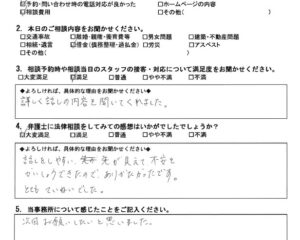 ☑予約・問い合わせ時の電話対応が良かった □ホームページの内容
□相談費用 □その他( )
2. 本日のご相談内容をお聞かせください。
□交通事故 □離婚・親権・養育費等 □男女問題 □建築・不動産問題
□相続・遺言 ☑借金(債務整理・過払金) □労災 □アスベスト
□その他( )
3. 相談予約時や相談当日のスタッフの接客・対応について満足度をお聞かせください。
□大変満足 ☑満足 □普通 □やや不満 □不満
◆よろしければ、具体的な理由をお聞かせください◆
詳しく話しの内容を聞いてくれました。
4. 弁護士に法律相談をしてみての感想はいかがでしたでしょうか?
□大変満足 ☑満足 □普通 □やや不満 □不満
◆よろしければ、具体的な理由をお聞かせください◆
話しをしやすい、先が見えて不安を
かいしょうできたので、ありがたかったです。
とても ていねいでした。
5. 当事務所について感じたことをご記入ください。
次回お願いしたいと思いました。